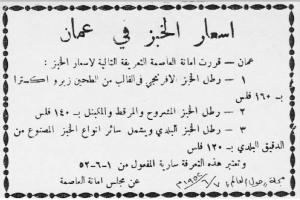 اسعار الخبز في عمان
عمان - قررت امانة العاصمة التعريفة التالية لاسعار الخبز :
١ - رطل الخبز الافرنجي في القالب من الطحين زيرو اكسترا
بـ ١٦٠ فلس
٢ - رطل الخبز المشروح والمرقط والمكبتل بـ ١٤٠ فلس
٣ - رطل الخبز البلدي ويشمل سائر انواع الخبز المصنوع من
الدقيق البلدي بـ ١٢٠ فلس
وتعتبر هذه التعرفة سارية المفعول من ١-٦-٥٢
عن مجلس امانة العاصمة
مجلة «حول العالم» ٧/٦/١٩٥٢م